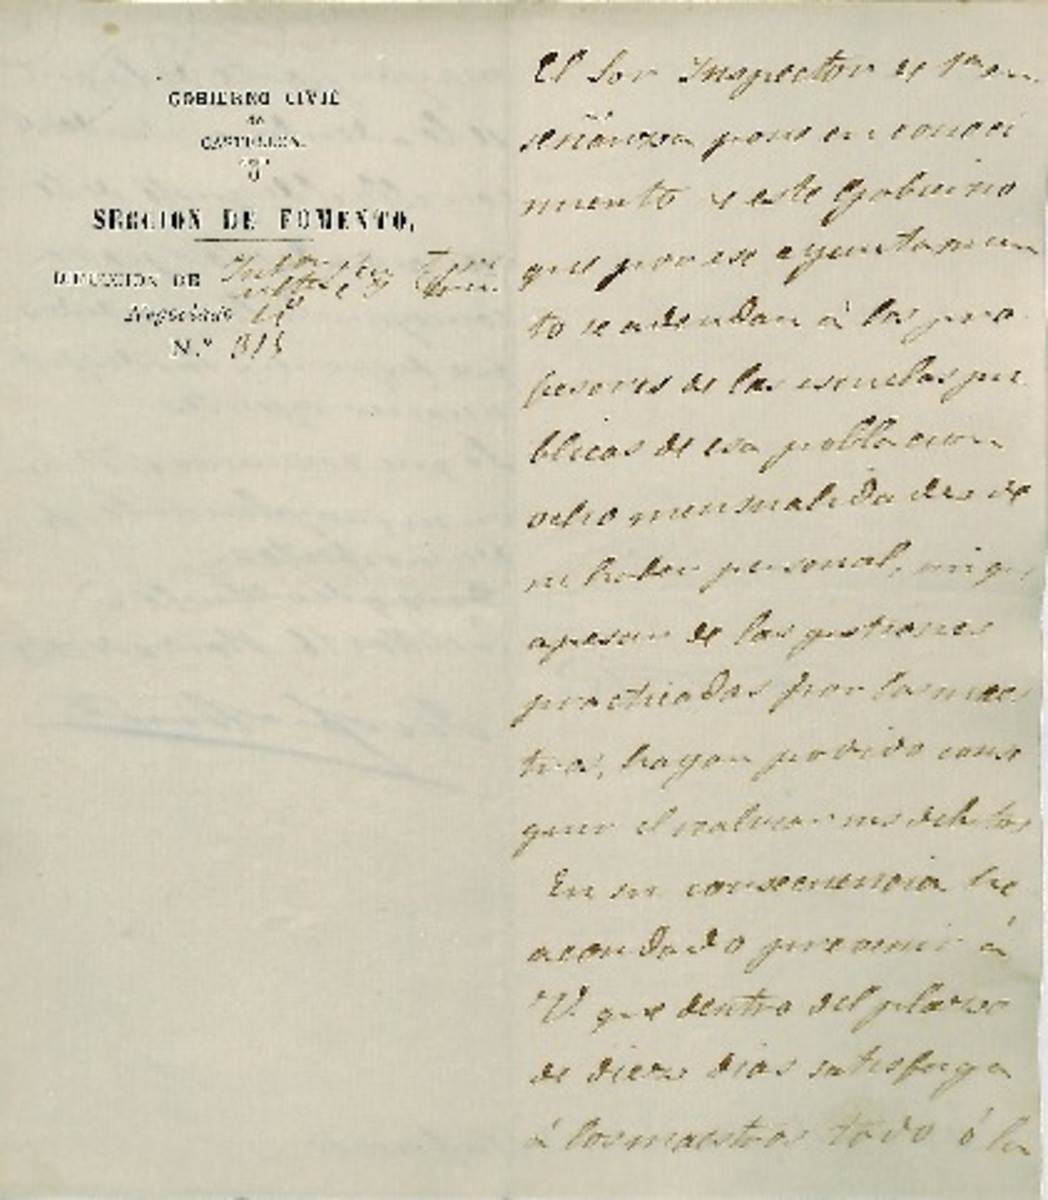 GOBIERNO CIVIL
de
CASTELLON.
SECCION DE FOMENTO.
DIRECCION DE
Negociado
N.º
El Sor Inspector de 1ª en
señanza pone en conoci
miento de este Gobierno
que por ese ayuntamien
to se adeudan á los pro
fesores de las escuelas pu
blicas de esa poblacion
ocho mensualidades de
su haber personal, sin que
apesar de las gestiones
practicadas por los maes
tros, hayan podido conse
guir el realizar sus debitos
En su consecuencia he
acordado prevenir á
V. que dentro del plazo
de diez dias satisfaga
á los maestros todo ó la